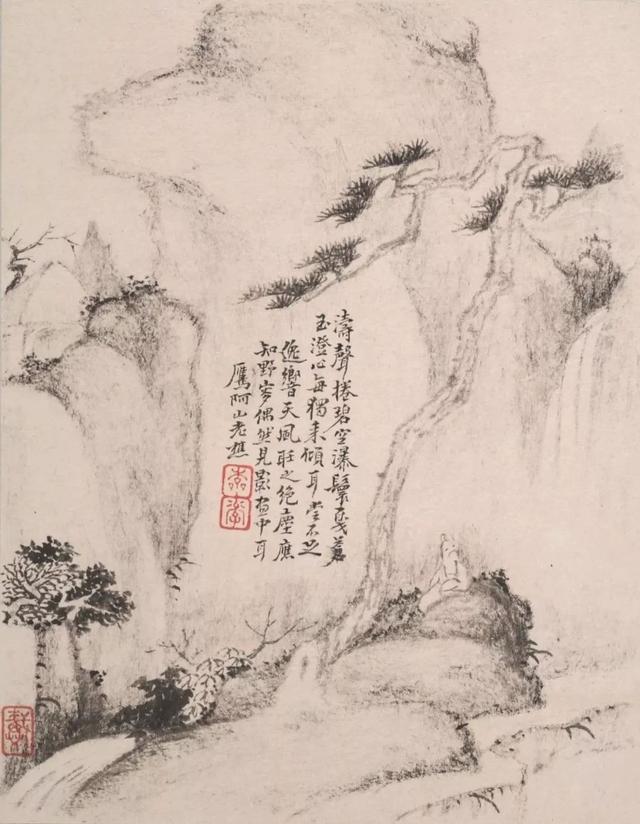 濤聲捲碧空瀑戛蒼
玉澄心每獨來傾耳不足
逸響天風之絕塵應
知野偶然見影畫中耳
鷹阿山老樵